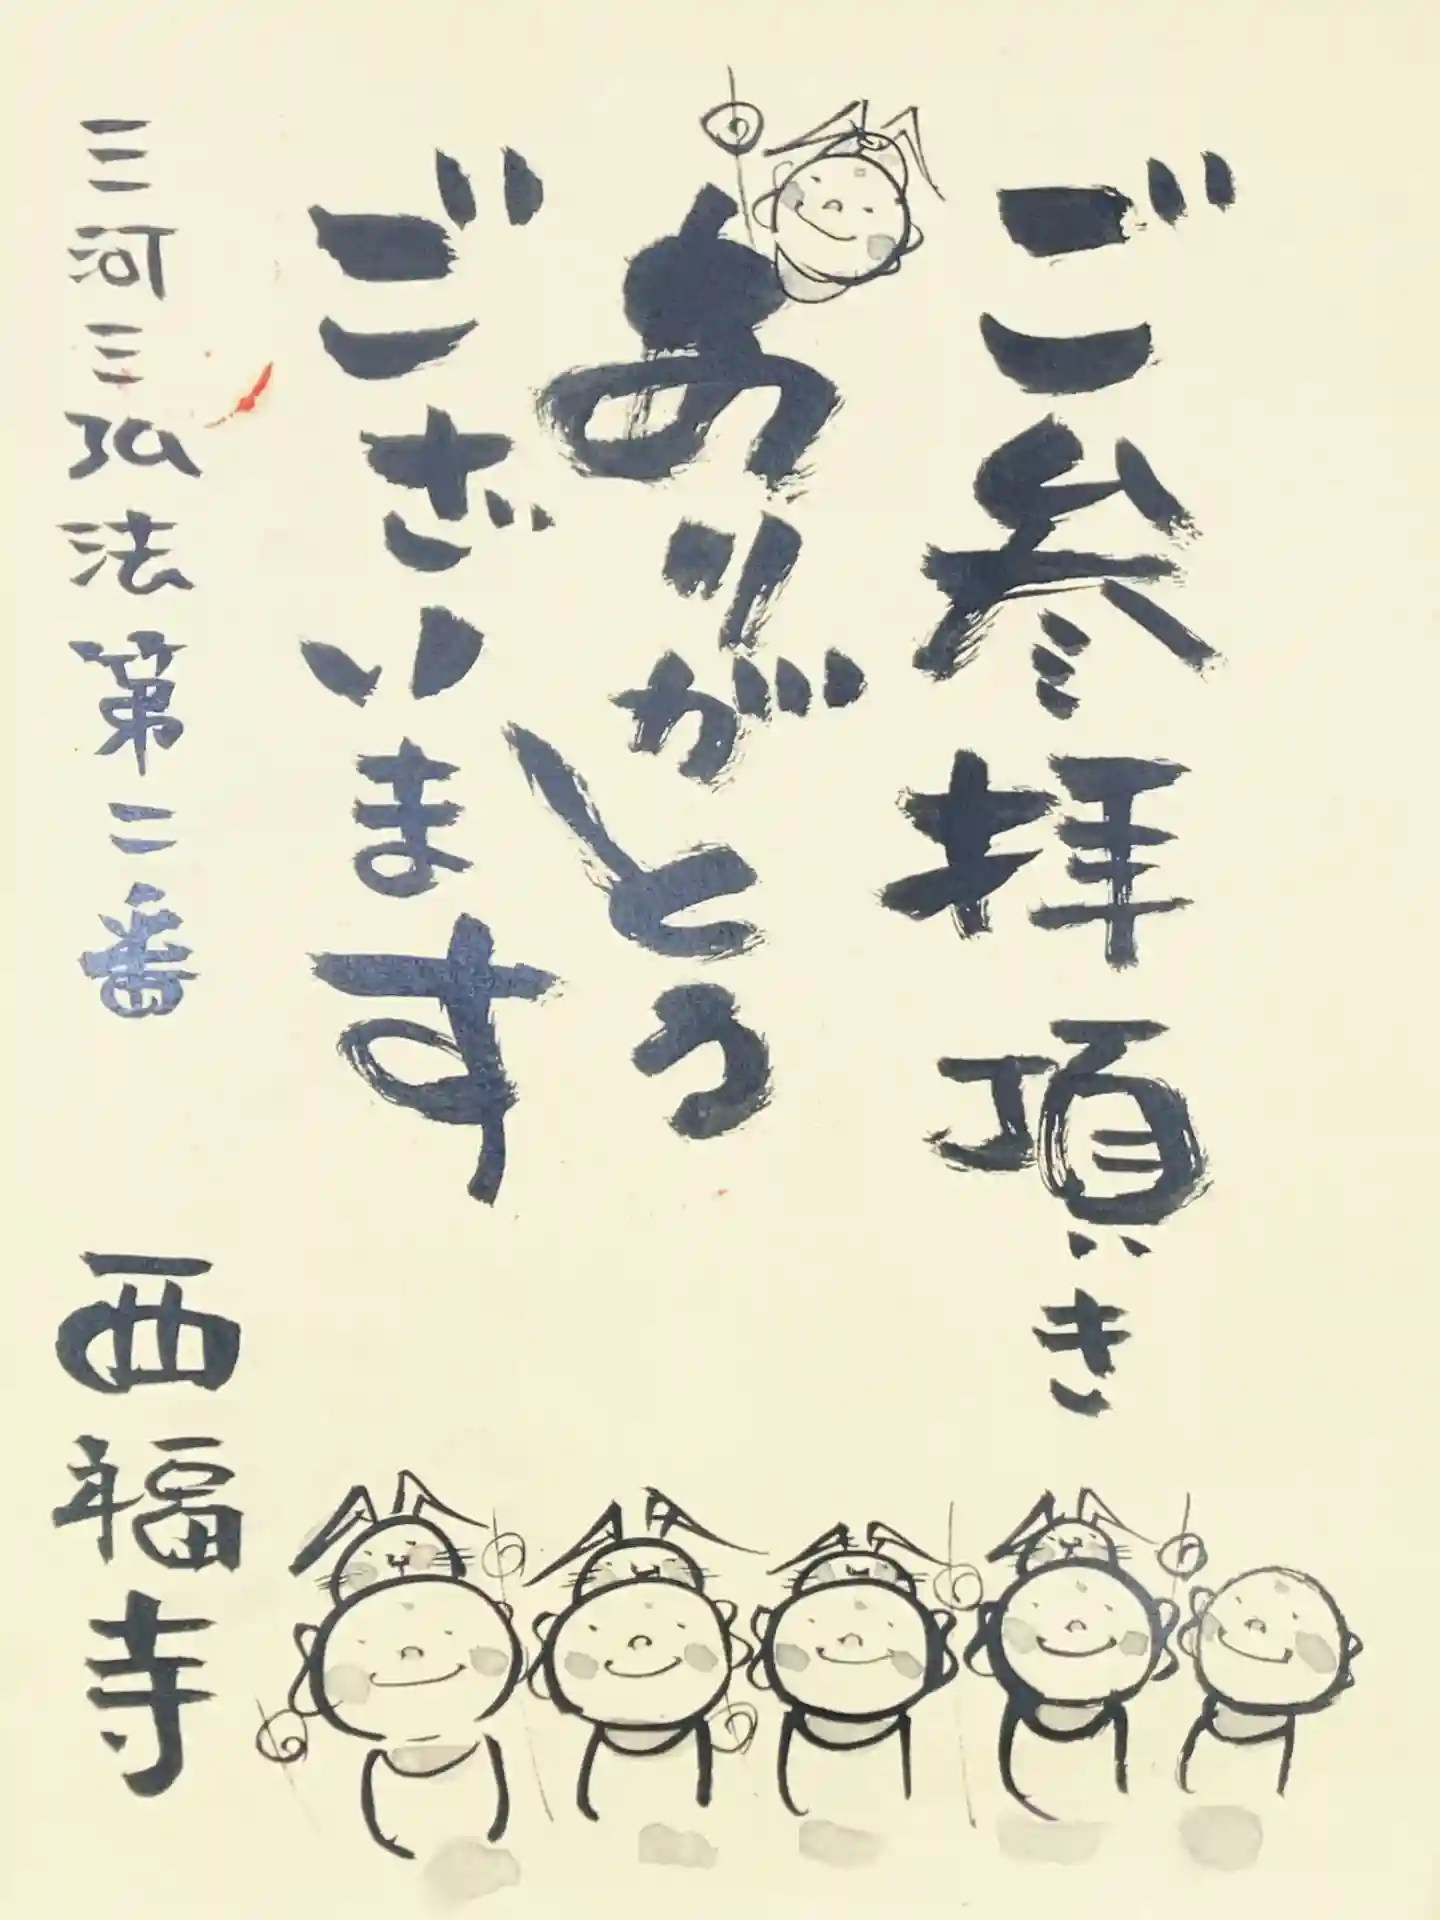 ご参拝頂き
ありがとう
ございます
三河三弘法第二番
西福寺